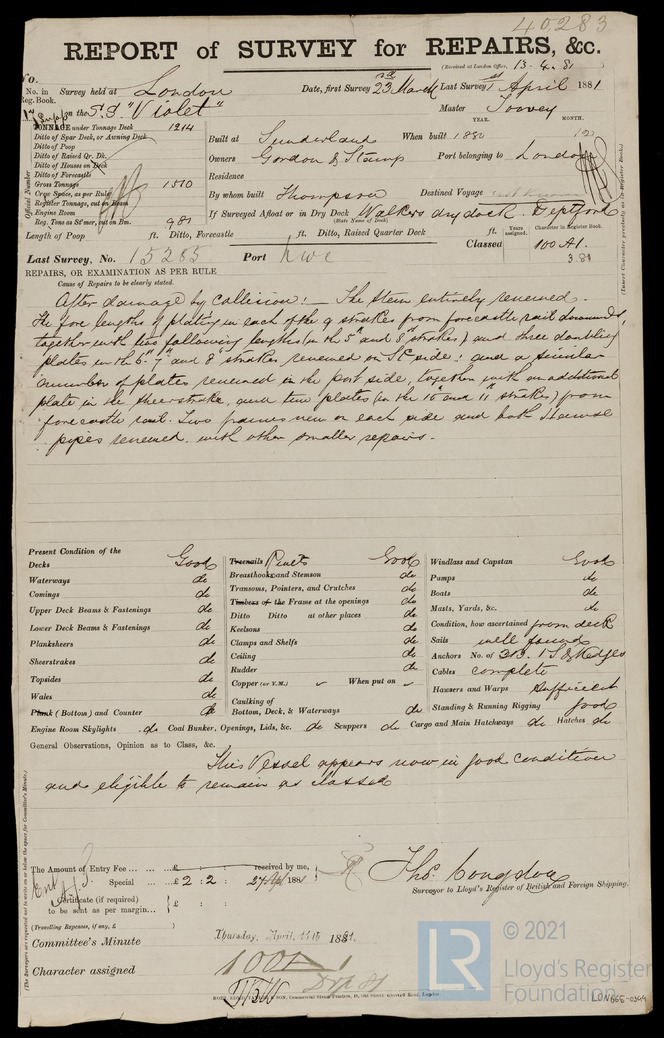 40,283
REPORT of SURVEY for REPAIRS, &c.
(Received at London Office, 13-4-81
No.
No. in Reg. Book. Survey held at London Date, first Survey 23rd March Last Survey 1st April 1881
on the S.S. "Violet" Master Tovey
YEAR. MONTH.
TONNAGE under Tonnage Deck 1214
Ditto of Spar Deck, or Awning Deck
Ditto of Poop
Ditto of Raised Qr. Dk.
Ditto of Houses on Deck
Ditto of Forecastle
Gross Tonnage 1510
Crew Space, as per Rule
Register Tonnage, cut on Beam
Engine Room
Reg. Tons as St'mer, cut on Bm. 981
Official Number
Built at Sunderland When built 1880 12
Owners Gordon & Stamp Port belonging to London
Residence
By whom built Thompson Destined Voyage
If Surveyed Afloat or in Dry Dock Walkers dry dock. Deptford
(State Name of Dock)
Length of Poop ft. Ditto, Forecastle ft. Ditto, Raised Quarter Deck ft. Years assigned. Character in Register Book.
Last Survey, No. 15285 Port Nwc Classed 100 A1.
3.81
(Insert Character precisely as in Register Book.)
REPAIRS, OR EXAMINATION AS PER RULE
Cause of Repairs to be clearly stated.
After damage by collision:— The stem entirely renewed.
The fore lengths of plating in each of the 9 strakes from forecastle rail downwards,
together with two following lengths (in the 5th and 8th strakes) and three doubling
plates in the 6th 7th and 8th strakes renewed on St side: and a similar
number of plates renewed in the port side, together with an additional
plate in the sheerstrake, and two plates (in the 10th and 11th strakes) from
forecastle rail. Two frames new on each side and both Hawse
pipes renewed. with other smaller repairs.
Present Condition of the
Decks Good
Waterways do
Comings do
Upper Deck Beams & Fastenings do
Lower Deck Beams & Fastenings do
Planksheers do
Sheerstrakes do
Topsides do
Wales do
Plank (Bottom) and Counter do
Treenails Rivets Good
Breasthooks and Stemson do
Transoms, Pointers, and Crutches do
Timbers of the Frame at the openings do
Ditto Ditto at other places do
Keelsons do
Clamps and Shelfs do
Ceiling do
Rudder do
Copper (or Y.M.) When put on
Caulking of
Bottom, Deck, & Waterways do
Windlass and Capstan Good
Pumps do
Boats do
Masts, Yards, &c. do
Condition, how ascertained from deck
Sails well found
Anchors No. of 3B. 1 S & 2 Kedges
Cables complete
Hawsers and Warps Sufficient
Standing & Running Rigging good
Engine Room Skylights do Coal Bunker, Openings, Lids, &c. do Scuppers do Cargo and Main Hatchways do Hatches do
General Observations, Opinion as to Class, &c.
This Vessel appears now in good condition
and eligible to remain as classed
The Amount of Entry Fee ... ... £ : : received by me,
Special ... ... £ 2 : 2 : 27 Apl 1881
Certificate (if required)
to be sent as per margin... £ :
(Travelling Expenses, if any, £ )
Thos. Congdon
Surveyor to Lloyd's Register of British and Foreign Shipping.
Committee's Minute Thursday, April 14th 1881.
Character assigned 100A1
(The Surveyors are requested not to write on or below the space for Committee's Minute.)
LR
© 2021
Lloyd's Register
Foundation
LON666-0399